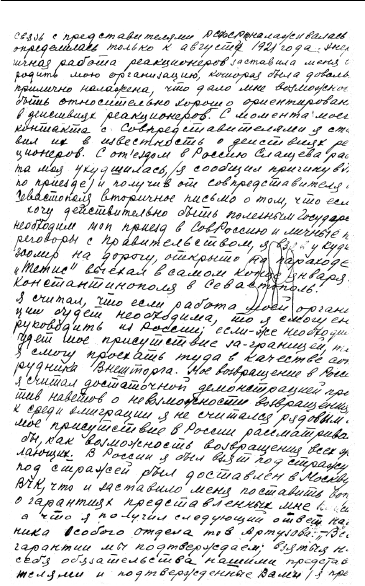 связь с представителями РСФСР налаживалась
определилась только к августу 1921 года. Энер
ичная работа реакционеров заставила меня с
родить мою организацию, которая была доволь
прилично налажена, что дало мне возможнос
быть относительно хорошо ориентирован
в действиях реакционеров. С момента моего
контакта с Совпредставителями я ста
вил их в известность о действиях ре
ционеров. С от'ездом в Россию Слащева рас
та моя ухудшилась, /я сообщил причину
по приезде/ и получив от совпредставителя
Севастополя вторичное письмо о том, что есл
хочу действительно быть полезным Государс
необходим мой приезд в СовРоссию и личные п
реговоры с Правительством, я
на дорогу, открыто на пароходе
"Жетис" выехал в самом конце января
Константинополя в Севастополь.
Я считал, что если работа моей органи
ции будет необходима, то я смогу ею
руководить из России; если-же необходи
будет мое присутствие за-границей, т
я смогу проехать туда в качестве
рудника Внешторга. Мое возвращение в Росси
я считал достаточной демонстрацией про
тив наветов о невозможности возвращения
к среди эмиграции я не считался рядовым
мое присутствие в России рассматрива
бы, как возможность возвращения всех
лающих. В России я был взят под стражу
под стражей был доставлен в Москву
ВЧК, что и заставило меня поставить
о гарантиях представленных мне
а что я получил следующий ответ на
ника Особого отдела тов Артузова: "Все
гарантии мы подтверждаем; взятые н
себя обязательства нашими представ
телями и подтвержденные Вами /я при